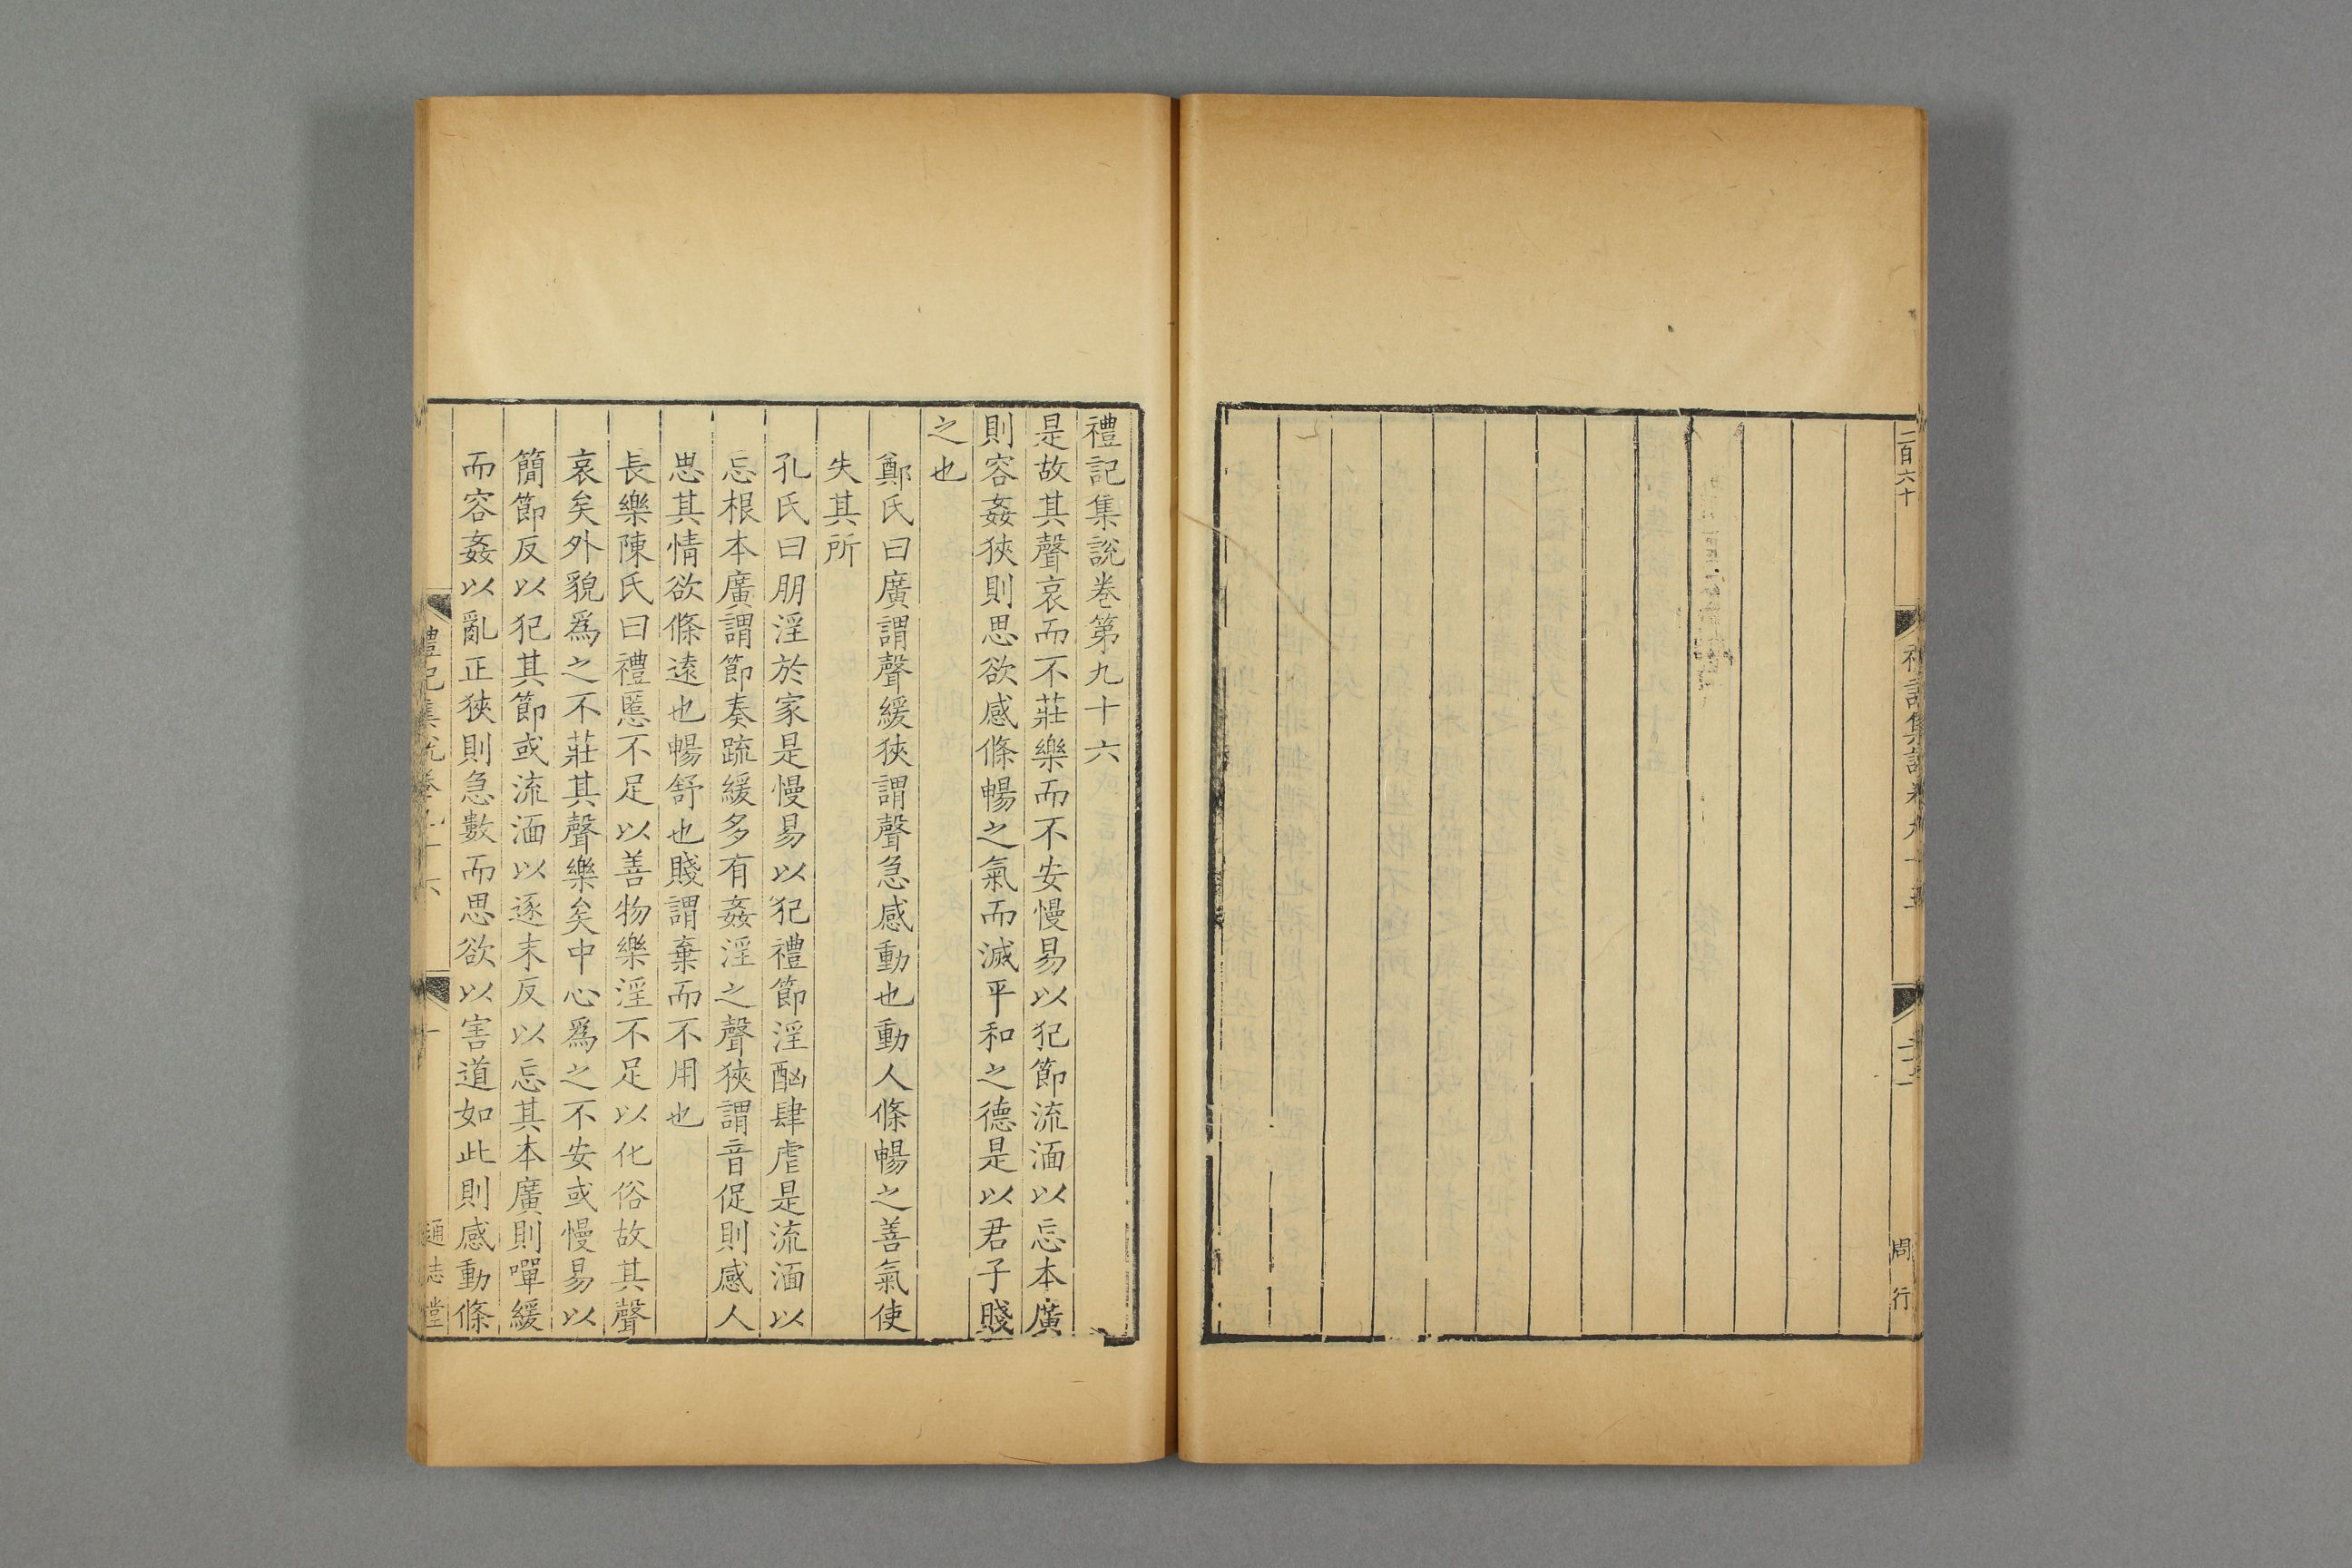 二百六十
禮記集說卷九十五
周行
禮記集說卷第九十六
是故其聲哀而不莊樂而不安慢易以犯節流湎以忘本廣
則容姦狹則思欲感條暢之氣而滅平和之德是以君子賤
之也
鄭氏曰廣謂聲緩狹謂聲急感動也動人條暢之善氣使
失其所
孔氏曰朋淫於家是慢易以犯禮節淫酗肆虐是流湎以
忘根本廣謂節奏疏緩多有姦淫之聲狹謂音促則感人
思其情欲條遠也暢舒也賤謂棄而不用也
長樂陳氏曰禮慝不足以善物樂淫不足以化俗故其聲
哀矣外貌爲之不莊其聲樂矣中心爲之不安或慢易以
簡節反以犯其節或流湎以逐末反以忘其本廣則嘽緩
而容姦以亂正狹則急數而思欲以害道如此則感動條
禮記集說卷九十六
一
通志堂